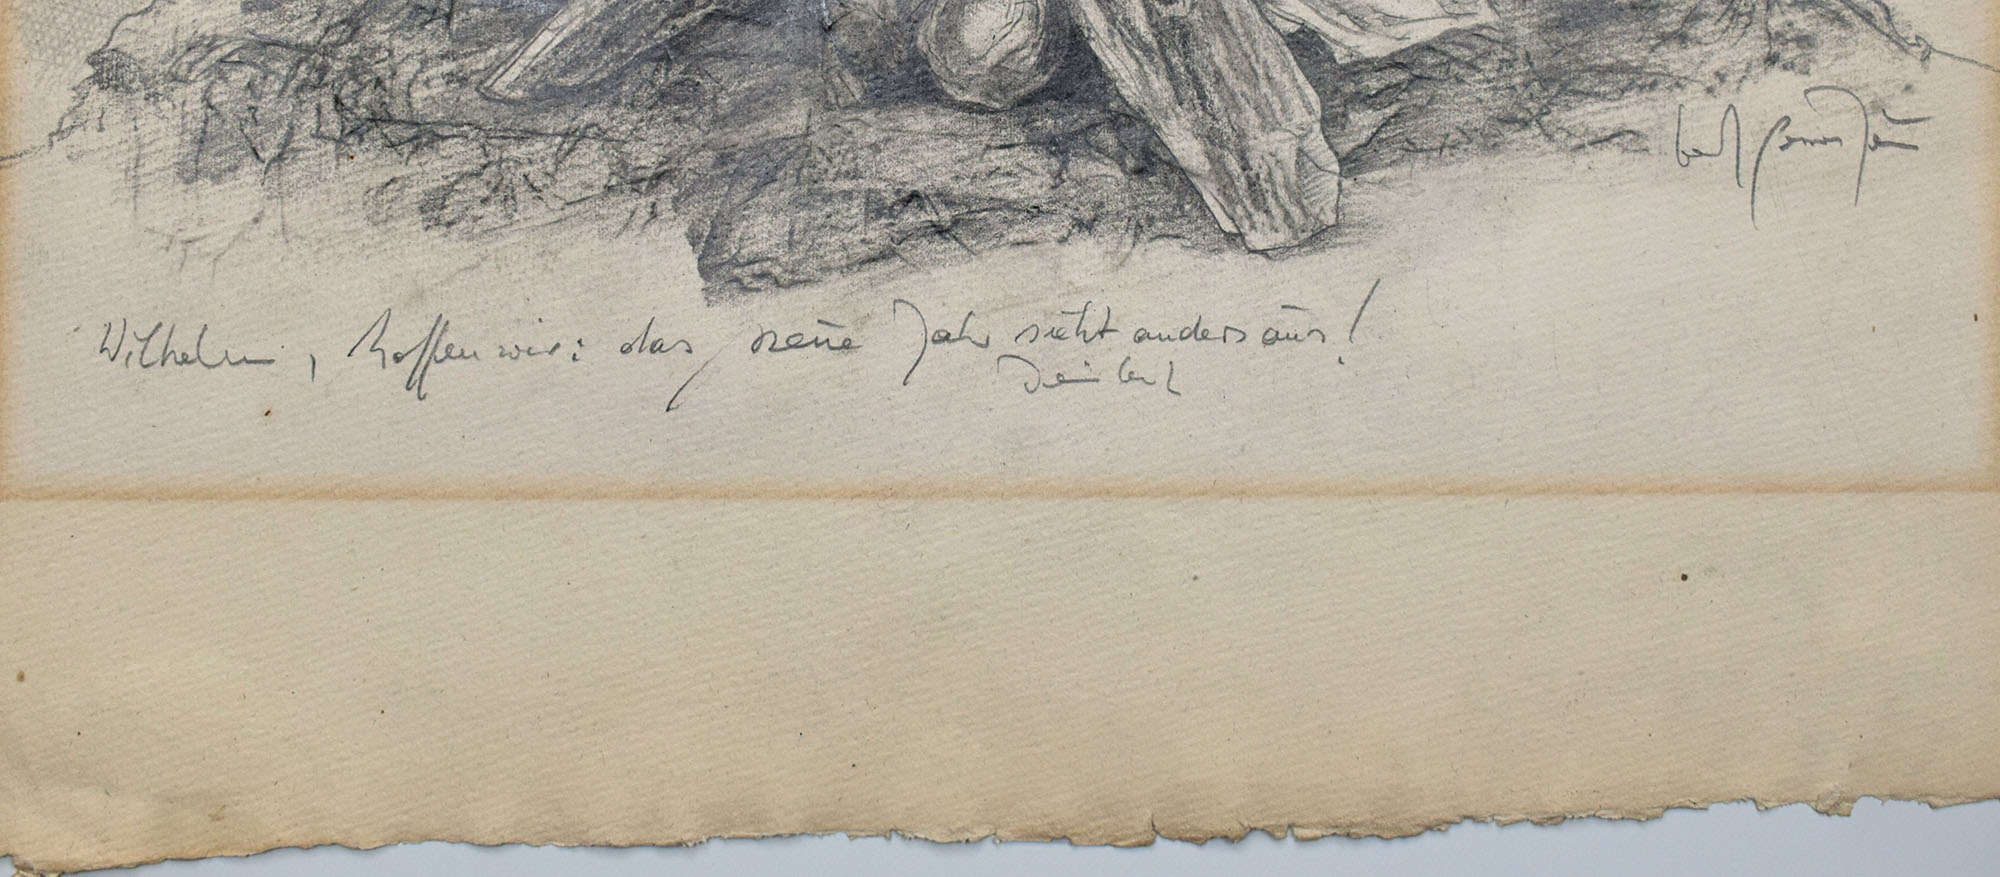 Wilhelm, hoffen wir: das neue Jahr sieht anders aus!
Dein bert